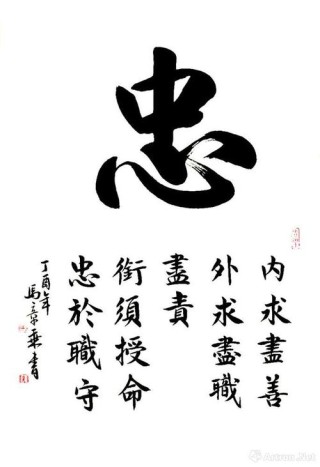 忠
内求盡善
外求盡職
盡責
銜須授命
忠於職守
丁酉年
馬章乘書